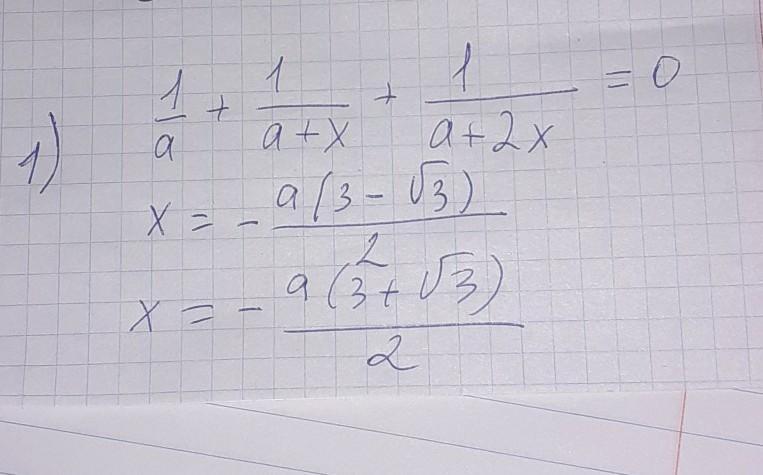 1) 1/a + 1/(a+x) + 1/(a+2x) = 0
x = - a(3-√3)/2
x = - a(3+√3)/2